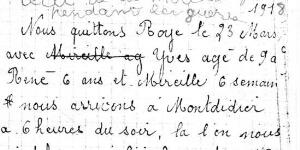 pendant la guerre 1918
Nous quittons Roye le 23 Mars
avec ~~Mireille ag~~ Yves agé de 9 a
René 6 ans et Mireille 6 semain
* nous arrivons à Montdidier
a 6 heures du soir, la l'on nous